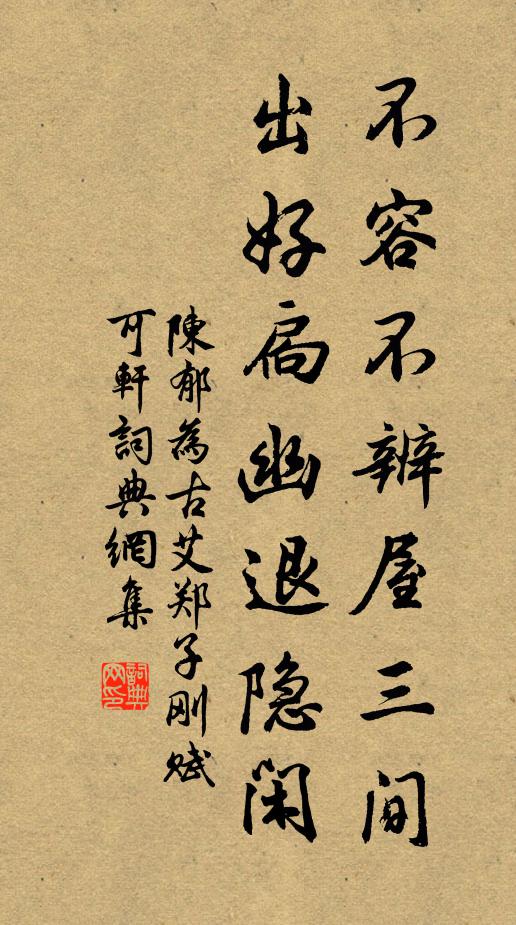 不容不辨屋三间
出好扃幽退隐闲
陳郁為古艾郑子刚赋
可軒詞典網集
詞典网印